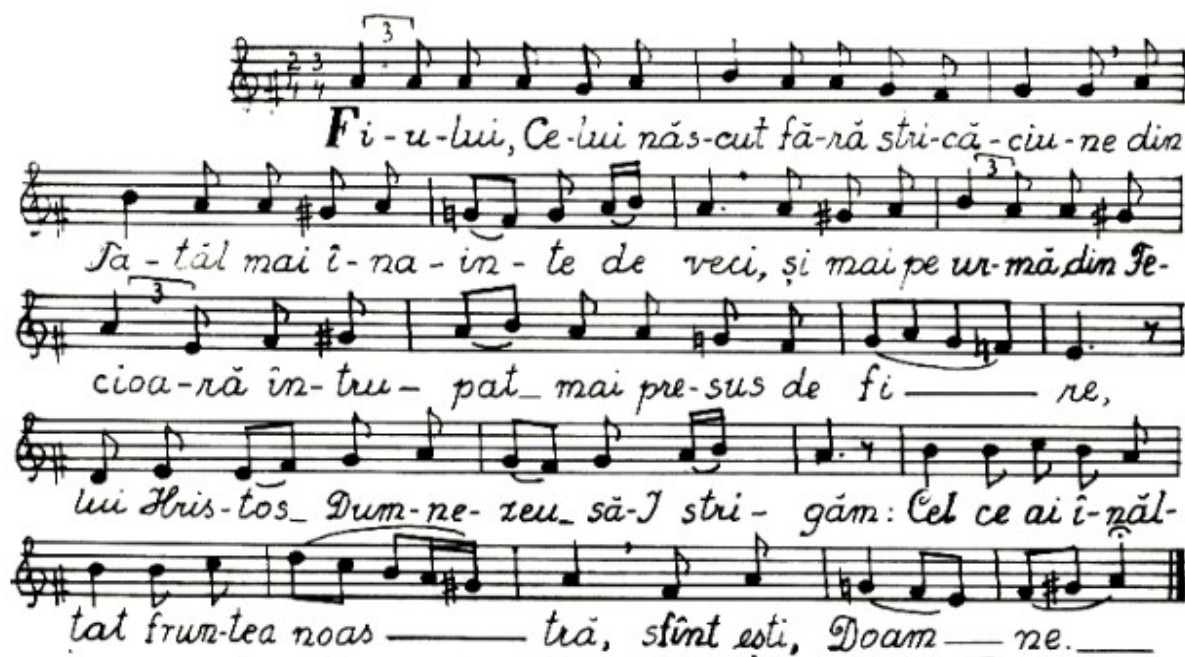 Fi-u-lui, Ce-lui năs-cut fă-ră stri-că-ciu-ne din
Ta-tăl mai î-na-in-te de veci, și mai pe ur-mă, din Fe-
cioa-ră în-tru-pat_ mai pre-sus de fi — re,
lui Hris-tos_ Dum-ne-zeu_ să-I stri-găm: Cel ce ai î-năl-
țat frun-tea noas — tră, sfînt ești, Doam — ne.